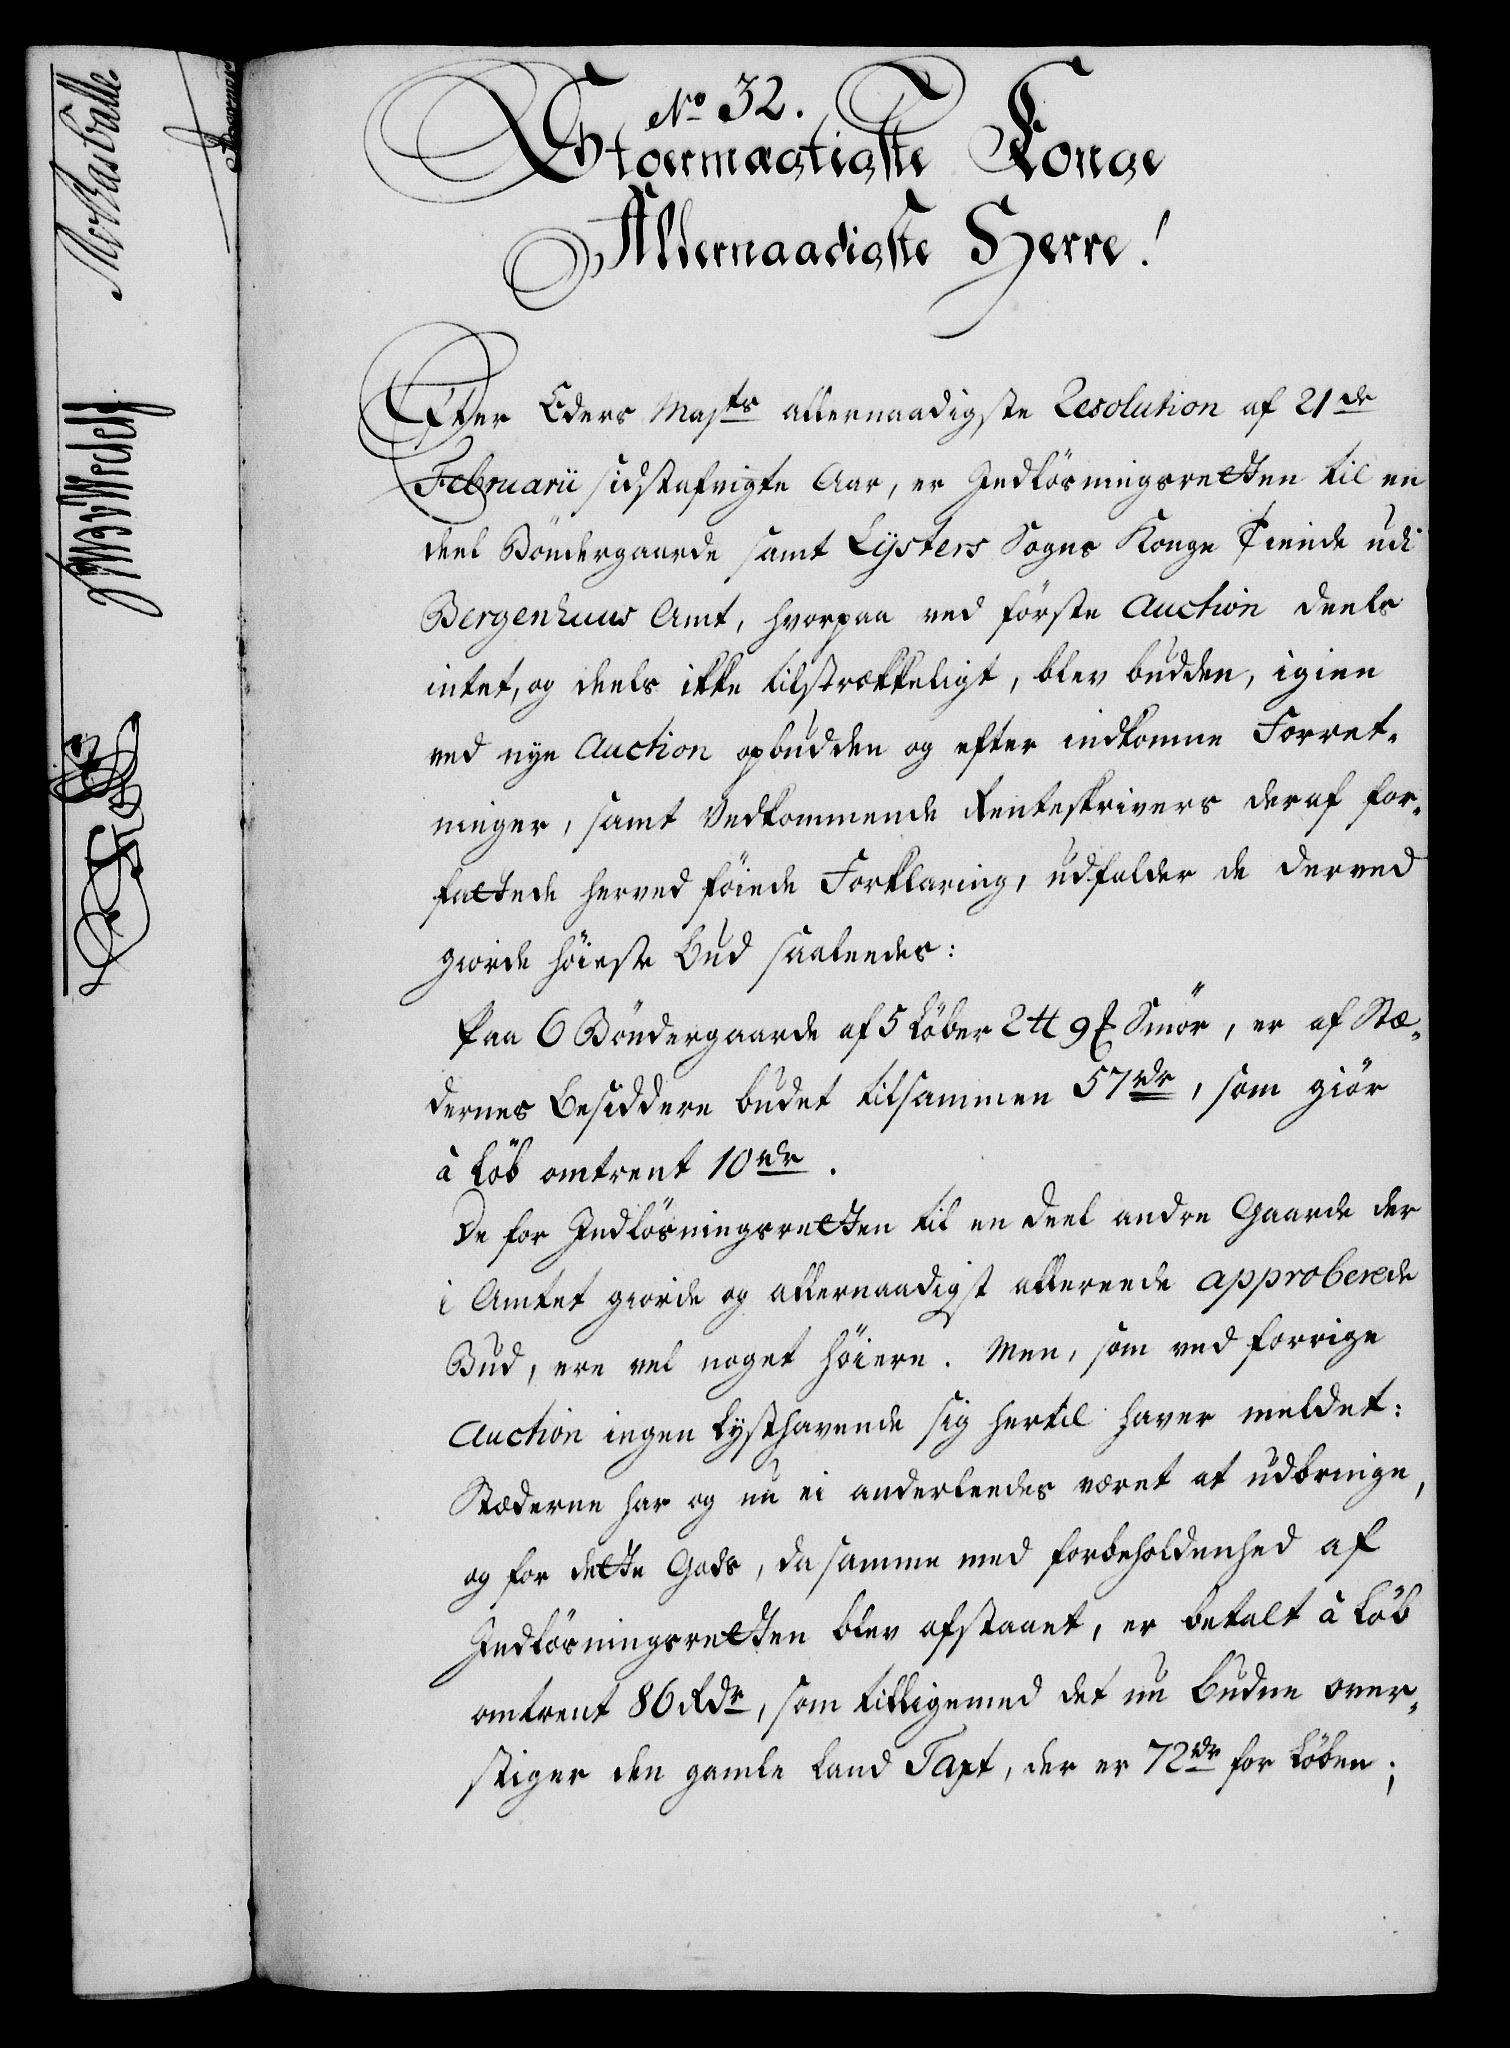 No 32.
Stoermægtigste Konge
Allernaadigste Herre!
Efter Eders Majts allernaadigste Resolution af 21de
Februarii sidstafvigte Aar, er Indlösningsretten til en
deel Böndergaarde samt Lysters Sogns Konge Tiende udi
Bergenhuus Amt, hvorpaa ved förste Auction deels
intet, og deels ikke tilstrækkeligt, blev budden, igien
ved nye Auction opbudden og efter indkomne Forret-
ninger, samt Vedkommende Renteskrivers deraf for-
fattede herved föiede Forklaring, udfalder de derved
giorde höieste Bud saaleedes:
Paa 6 Böndergaarde af 5 Löber 2 ℔ 9 Smör, er af Stæ-
dernes Besiddere budet tilsammen 57rdr, som giör
à Löb omtrent 10rdr.
De for Indlösningsretten til en deel andre Gaarde der
i Amtet giorde og allernaadigst allereede approberede
Bud, ere vel noget höiere. Men, som ved forrige
Auction ingen Lysthavende sig hertil haver meldet:
Stæderne har og nu ei anderleedes været at udbringe,
og for dette Gods, da samme med forbeholdenhed af
Indlösningsretten blev afstaaet, er betalt à Löb
omtrent 86 Rdr, som tilligemed det nu budne over-
stiger den gamle Land Taxt, der er 72rdr for Löben;